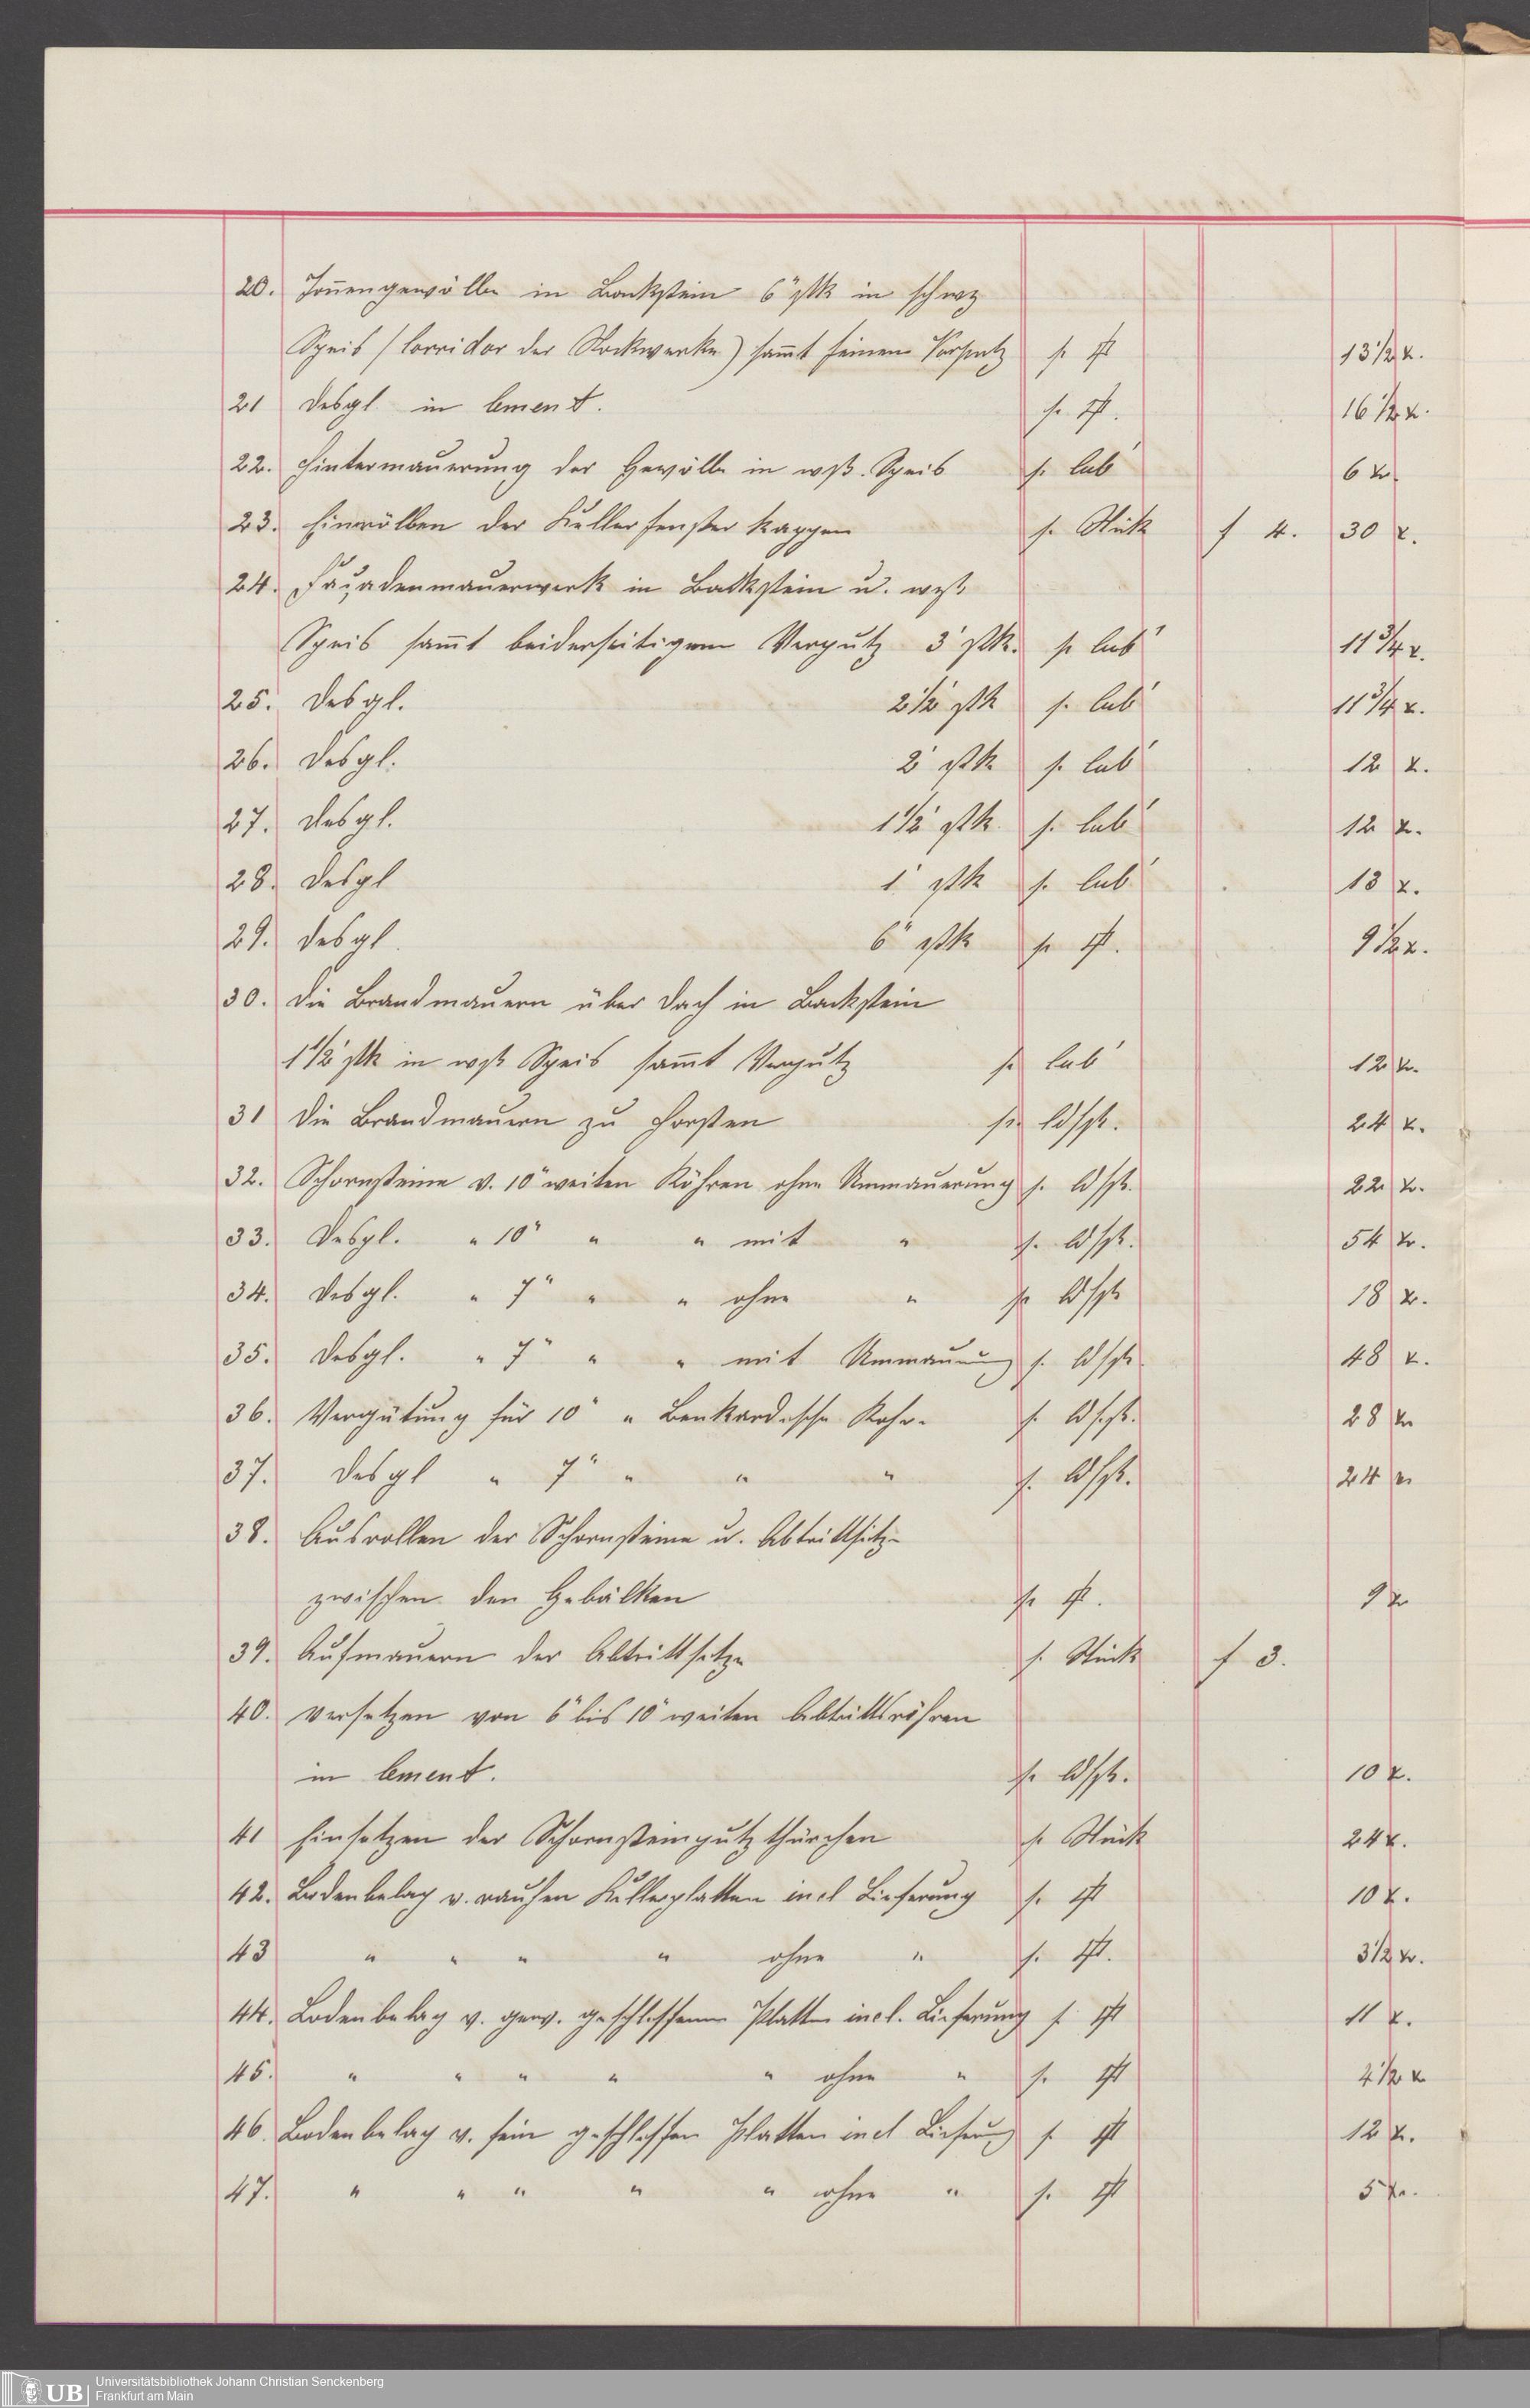 20. Toñengewölbe in Backstein 6" stk in schwz
Speis (Corridor der Stockwerke) sam̃t feinem Verputz pr □ft 13 1/2 x.
21 desgl. in Cement. pr. □ft. 16 1/2 x.
22. Hintermauerung der Gewölbe in wß. Speis pr. Cub' 6 xr.
23. Einwölben der Kellerfensterkappen pr. Stück f 4. 30 x.
24. Façadenmauerwerk in Backstein u. wß
Speis sam̃t beiderseitigem Verputz 3' stk. pr Cub' 11 3/4 x.
25. desgl. 2 1/2' stk pr. Cub' 11 3/4 x.
26. desgl. 2' stk pr. Cub' 12 x.
27. desgl. 1 1/2' stk. pr. Cub' 12 x.
28. desgl 1' stk pr. Cub' 13 x.
29. desgl. 6" stk pr □ft. 9 1/2 x.
30. die Brandmauern über Dach in Backstein
1 1/2' stk in wß Speis sam̃t Verputz pr Cub' 12 x.
31 die Brandmauern zu pr ldfft. 24 x.
32. Schornsteine v. 10" weiten Röhren ohne Ummauerung pr. ldfft. 22 x.
33. desgl. " 10" " " mit " pr. ldfft. 54 x.
34. desgl. " 7" " " ohne " pr ldfft 18 x.
35. desgl. " 7" " " mit Ummauerung pr. ldfft 48 x.
36. Vergütung für 10" " Benkardsche Rohr. pr. ldfft. 28 xr
37. desgl " 7" " " " pr. ldfft. 24 xr
38. Ausrollen der Schornsteine u. Abtrittsitze
zwischen den Gebälken pr □ft. 9 xr
39. Aufmauern der Abtrittsitze pr. Stück f 3.
40. Versetzen von 6" bis 10" weiten Abtrittsröhren
in Cement. pr ldfft. 10 x.
41 Einsetzen der Schornsteinputzthürchen pr. Stück 24 x.
42. Bodenbelag v. rauhen Kellerplatten incl Lieferung pr. □ft 10 x.
43 " " " " ohne " pr. □ft. 3 1/2 xr.
44. Bodenbelag v. gew. geschliffenen Platten incl. Lieferung pr □ft 11 x.
45. " " " " " ohne " pr. □ft 4 1/2 x
46. Bodenbelag v. fein geschliffen Platten incl Lieferung pr □ft 12 x.
47. " " " " " ohne " pr. □ft 5 xr.
UB Universitätsbibliothek Johann Christian Senckenberg
Frankfurt am Main